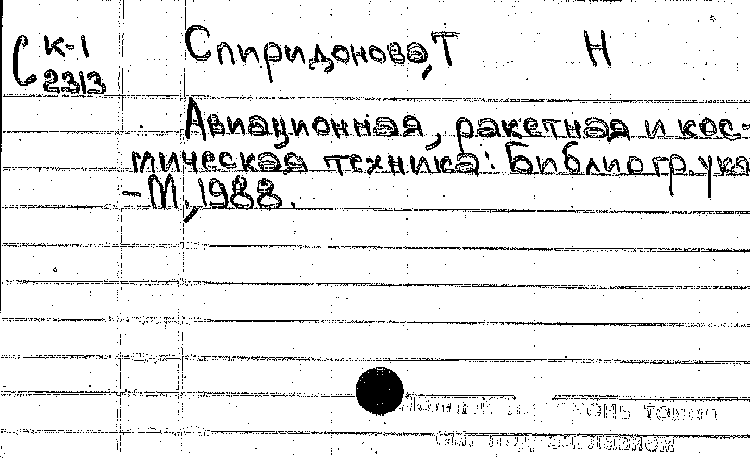 С К-1
2313
Спиридонова, Т Н
Авиационная, ракетная и кос-
мическая техника: Библиогр. ука
-М., 1988.